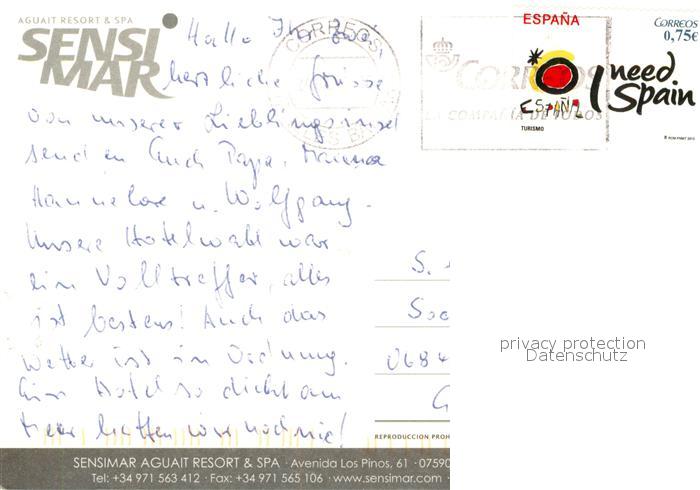 AGUAIT RESORT & SPA
SENSI
MAR
Hallo Ihr Zwei,
herzliche Grüsse
von unserer Lieblingsinsel
senden Euch Papa, Mama
Hannelore u. Wolfgang.
Unsere Hotelwahl war
ein Volltreffer, alles
ist bestens! Auch das
Wetter ist in Ordnung.
Ein Hotel so dicht am
Meer hatten wir noch nie!
CORREOS
CORREOS
LA COMPAÑIA DE TODOS
ESPAÑA
ESPAÑA
TURISMO
I need
Spain
CORREOS
0,75€
S.
0684
G
privacy protection
Datenschutz
REPRODUCCION PROH
SENSIMAR AGUAIT RESORT & SPA · Avenida Los Pinos, 61 · 07590
Tel: +34 971 563 412 · Fax: +34 971 565 106 · www.sensimar.com